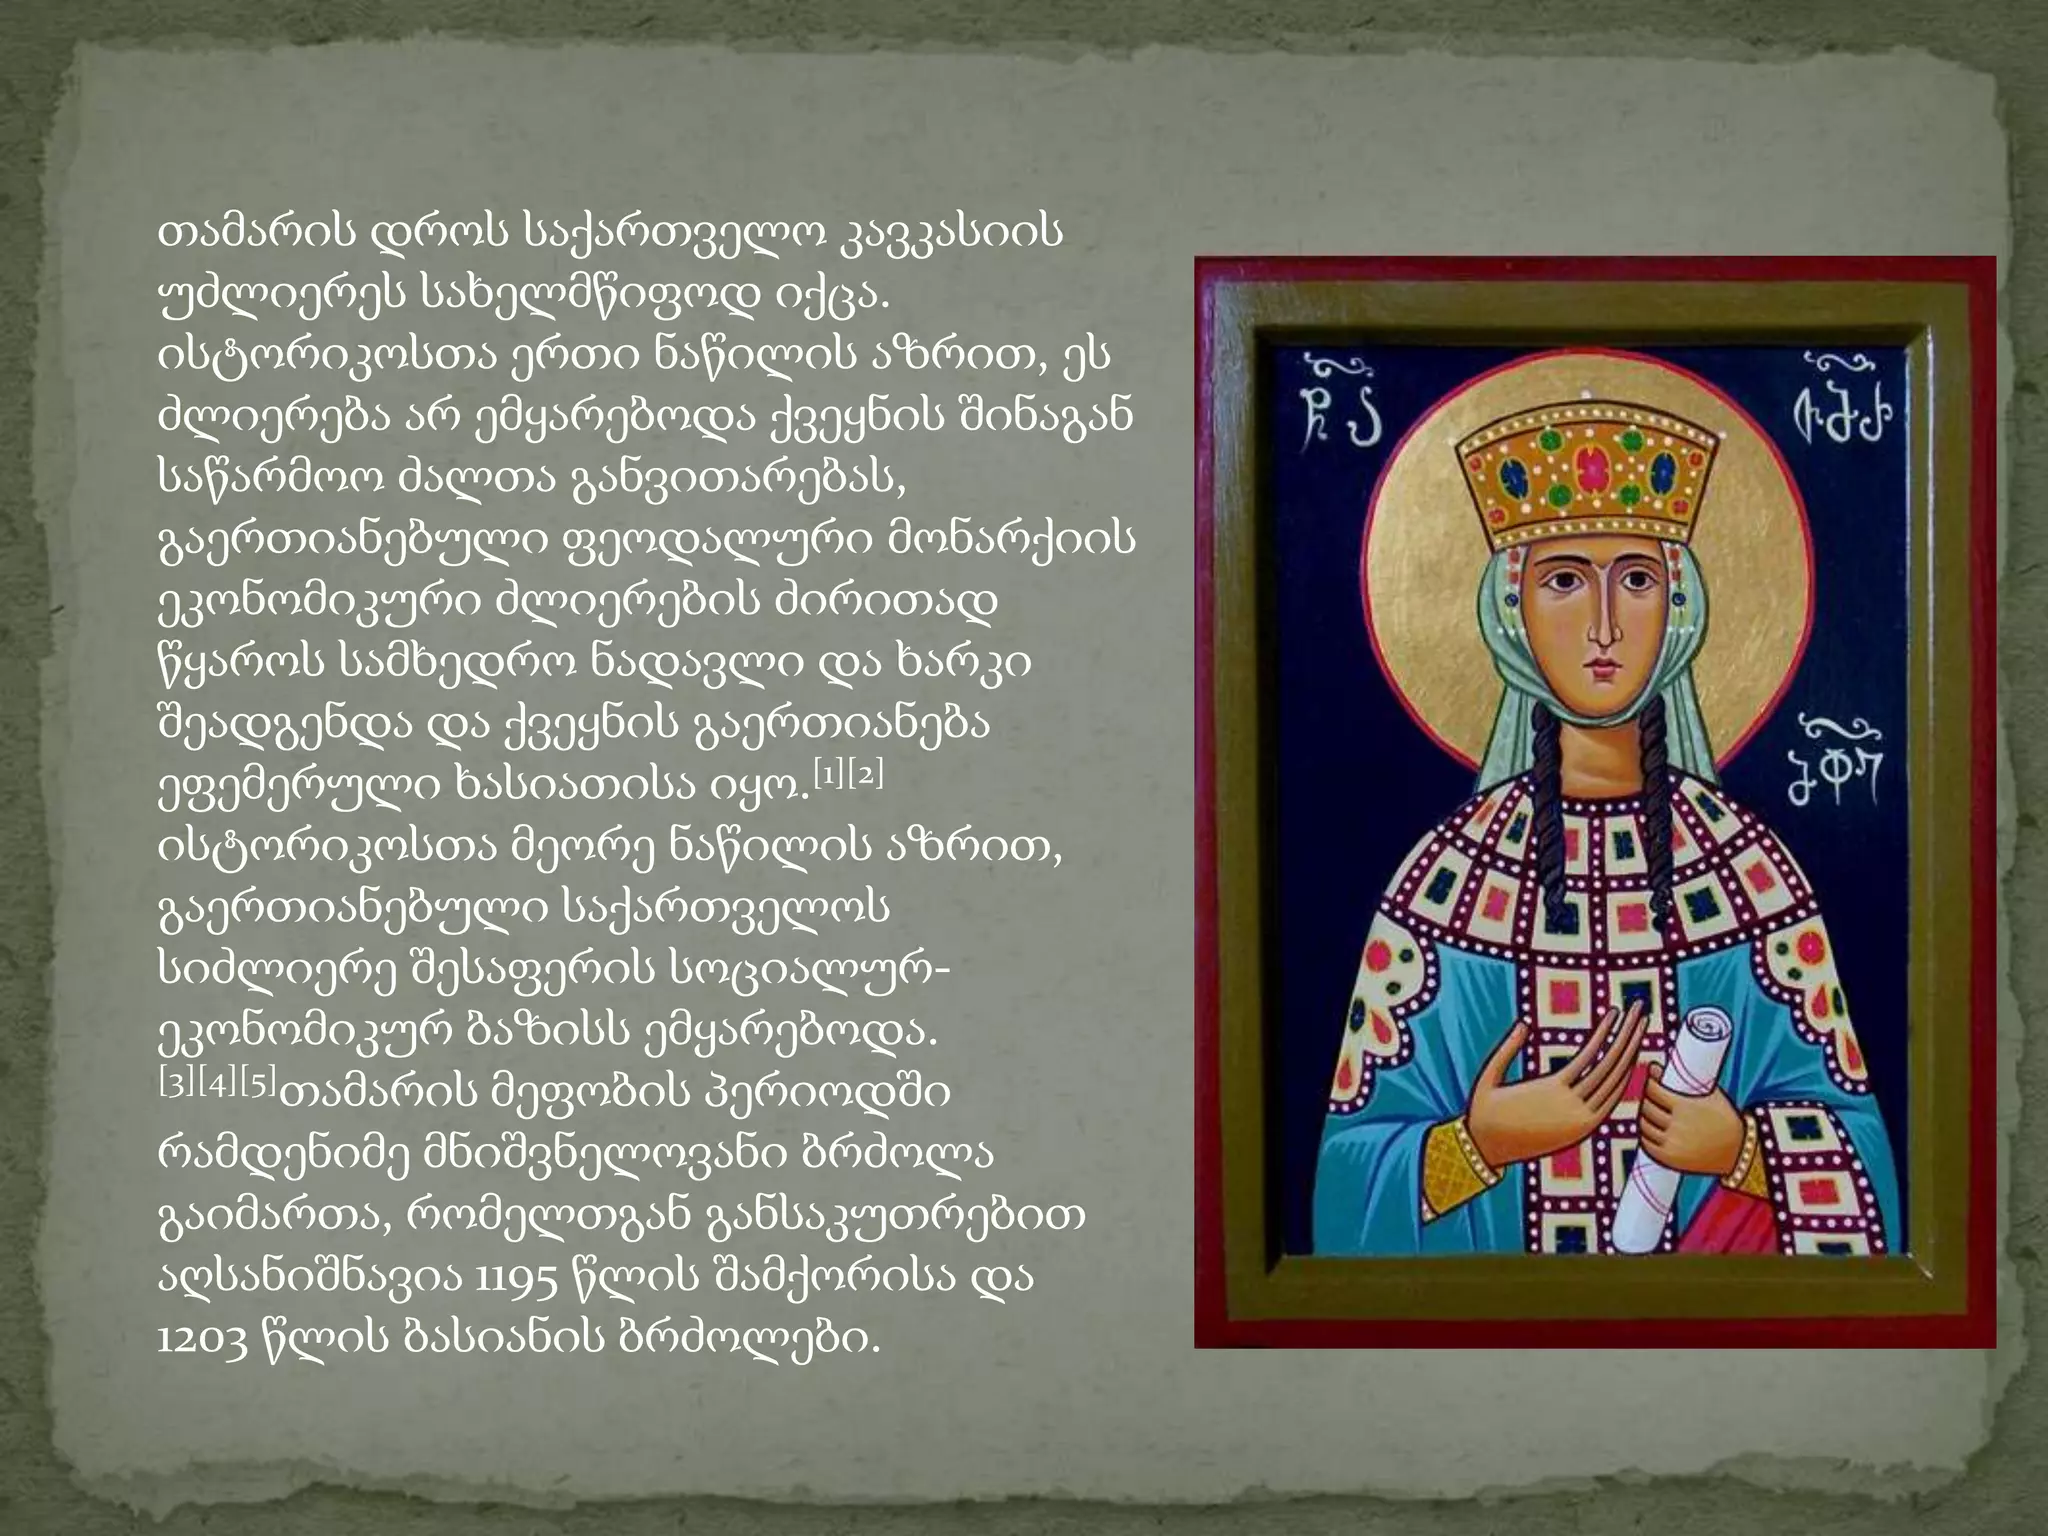 თამარის დროს საქართველო კავკასიის
უძლიერეს სახელმწიფოდ იქცა.
ისტორიკოსთა ერთი ნაწილის აზრით, ეს
ძლიერება არ ემყარებოდა ქვეყნის შინაგან
საწარმოო ძალთა განვითარებას,
გაერთიანებული ფეოდალური მონარქიის
ეკონომიკური ძლიერების ძირითად
წყაროს სამხედრო ნადავლი და ხარკი
შეადგენდა და ქვეყნის გაერთიანება
ეფემერული ხასიათისა იყო.[1][2]
ისტორიკოსთა მეორე ნაწილის აზრით,
გაერთიანებული საქართველოს
სიძლიერე შესაფერის სოციალურ-
ეკონომიკურ ბაზისს ემყარებოდა.
[3][4][5]თამარის მეფობის პერიოდში
რამდენიმე მნიშვნელოვანი ბრძოლა
გაიმართა, რომელთგან განსაკუთრებით
აღსანიშნავია 1195 წლის შამქორისა და
1203 წლის ბასიანის ბრძოლები.